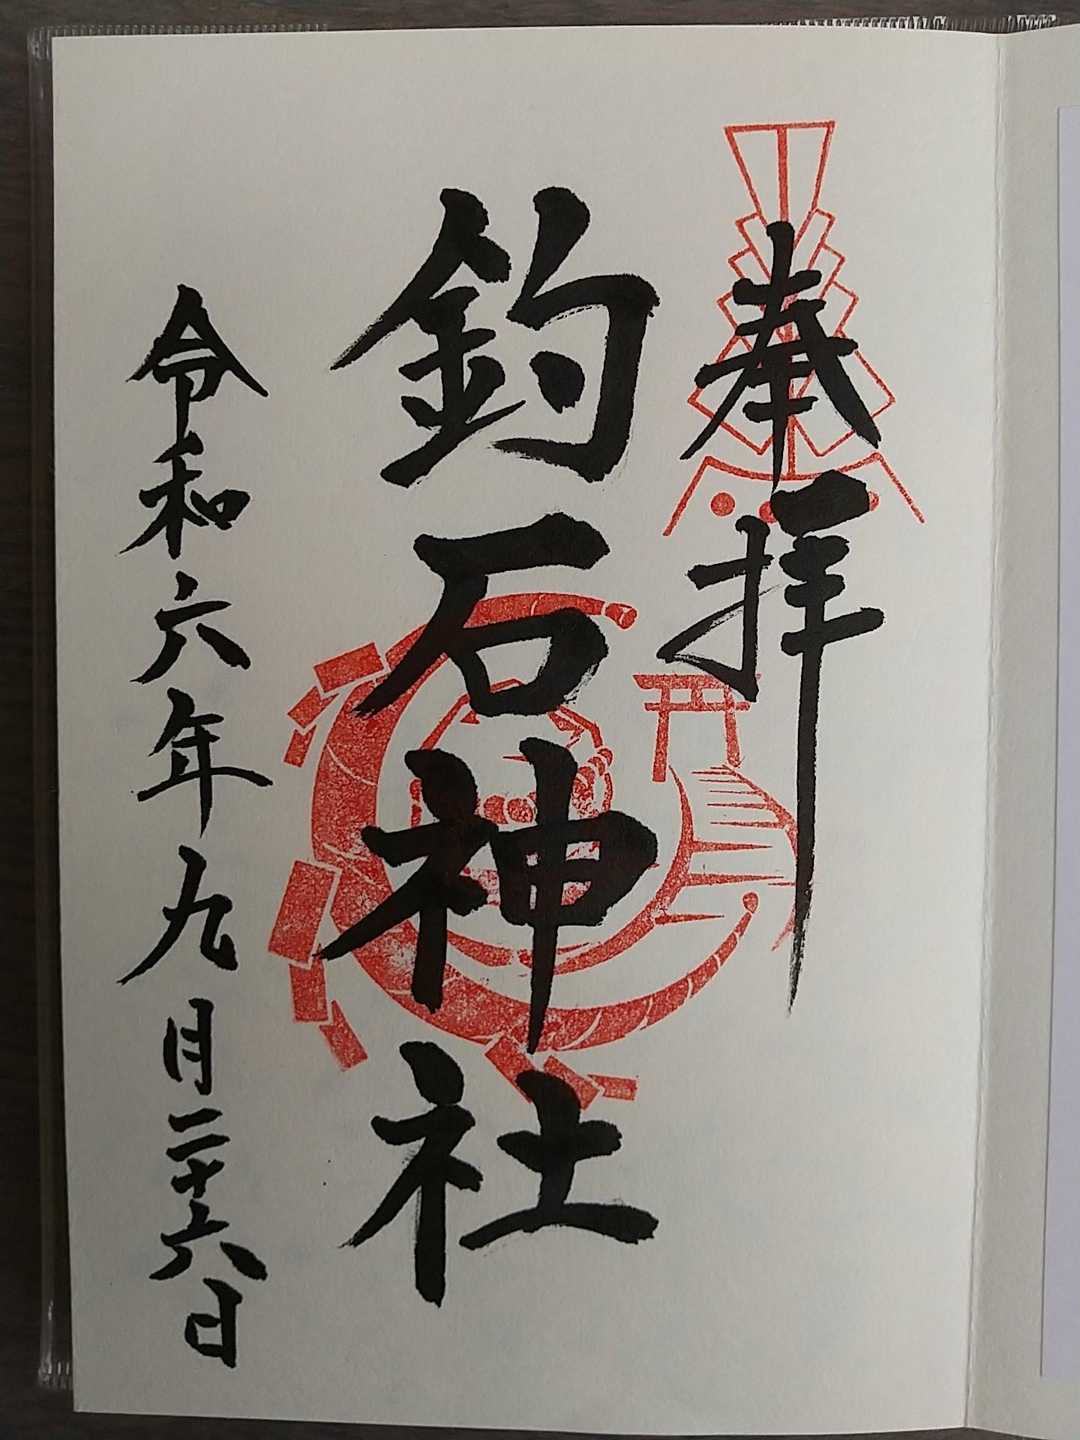 奉拝
釣石神社
令和六年九月二十六日